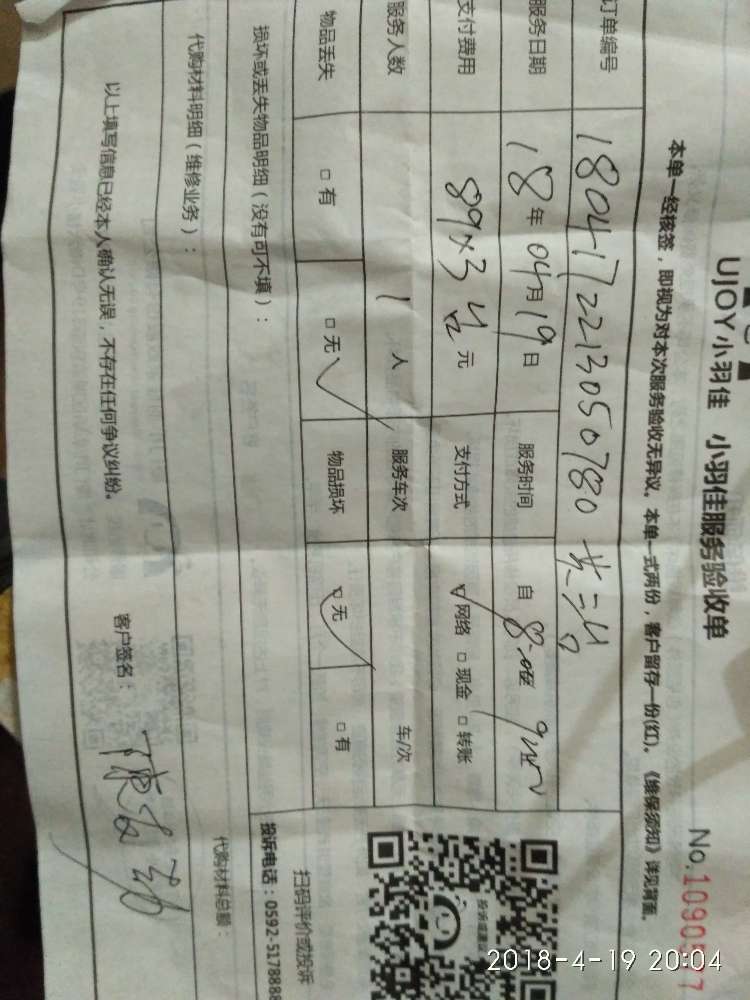 UJOY小羽佳 小羽佳服务验收单
No.
本单一经核签，即视为对本次服务验收无异议。本单一式两份，客户留存一份(红)。《维保须知》详见背面。
订单编号 1804172213050780
服务日期 18年 04月 19日 服务时间 自
支付费用 89×3 元 支付方式 网络 □现金 □转账
服务人数 1 人 服务车次 车/次
物品丢失 □有 □无 物品损坏 □无 □有
损坏或丢失物品明细（没有可不填）：
扫码评价或投诉
投诉电话：0592-5178888
代购材料明细（维修业务）：
代购材料总额：
以上填写信息已经本人确认无误，不存在任何争议纠纷。
客户签名：
2018-4-19 20:04